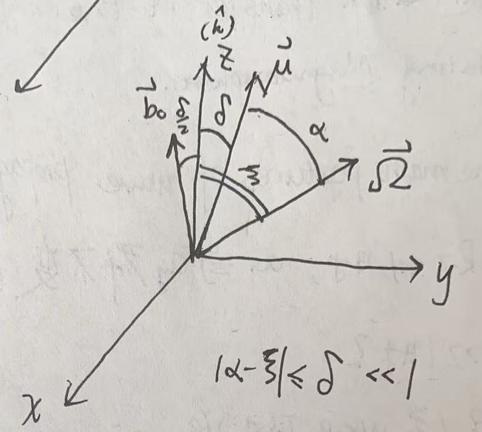 (ĥ)
z
μ⃗
b⃗₀
δ/2
δ
α
ξ
Ω⃗
y
x
|α-ξ|≤ δ <<1